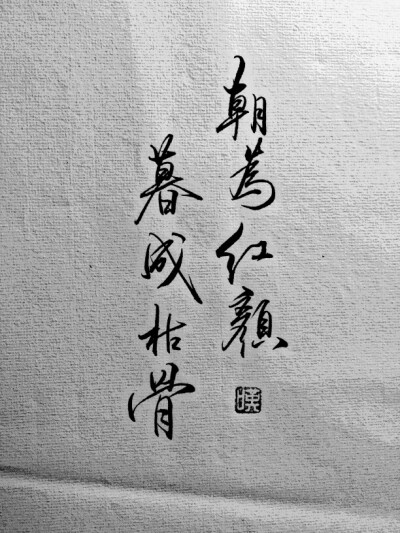 朝為红顏
暮成枯骨